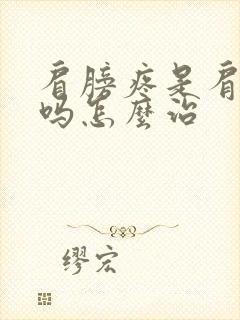 肩膀疼是肩
吗怎麼治
缪宏